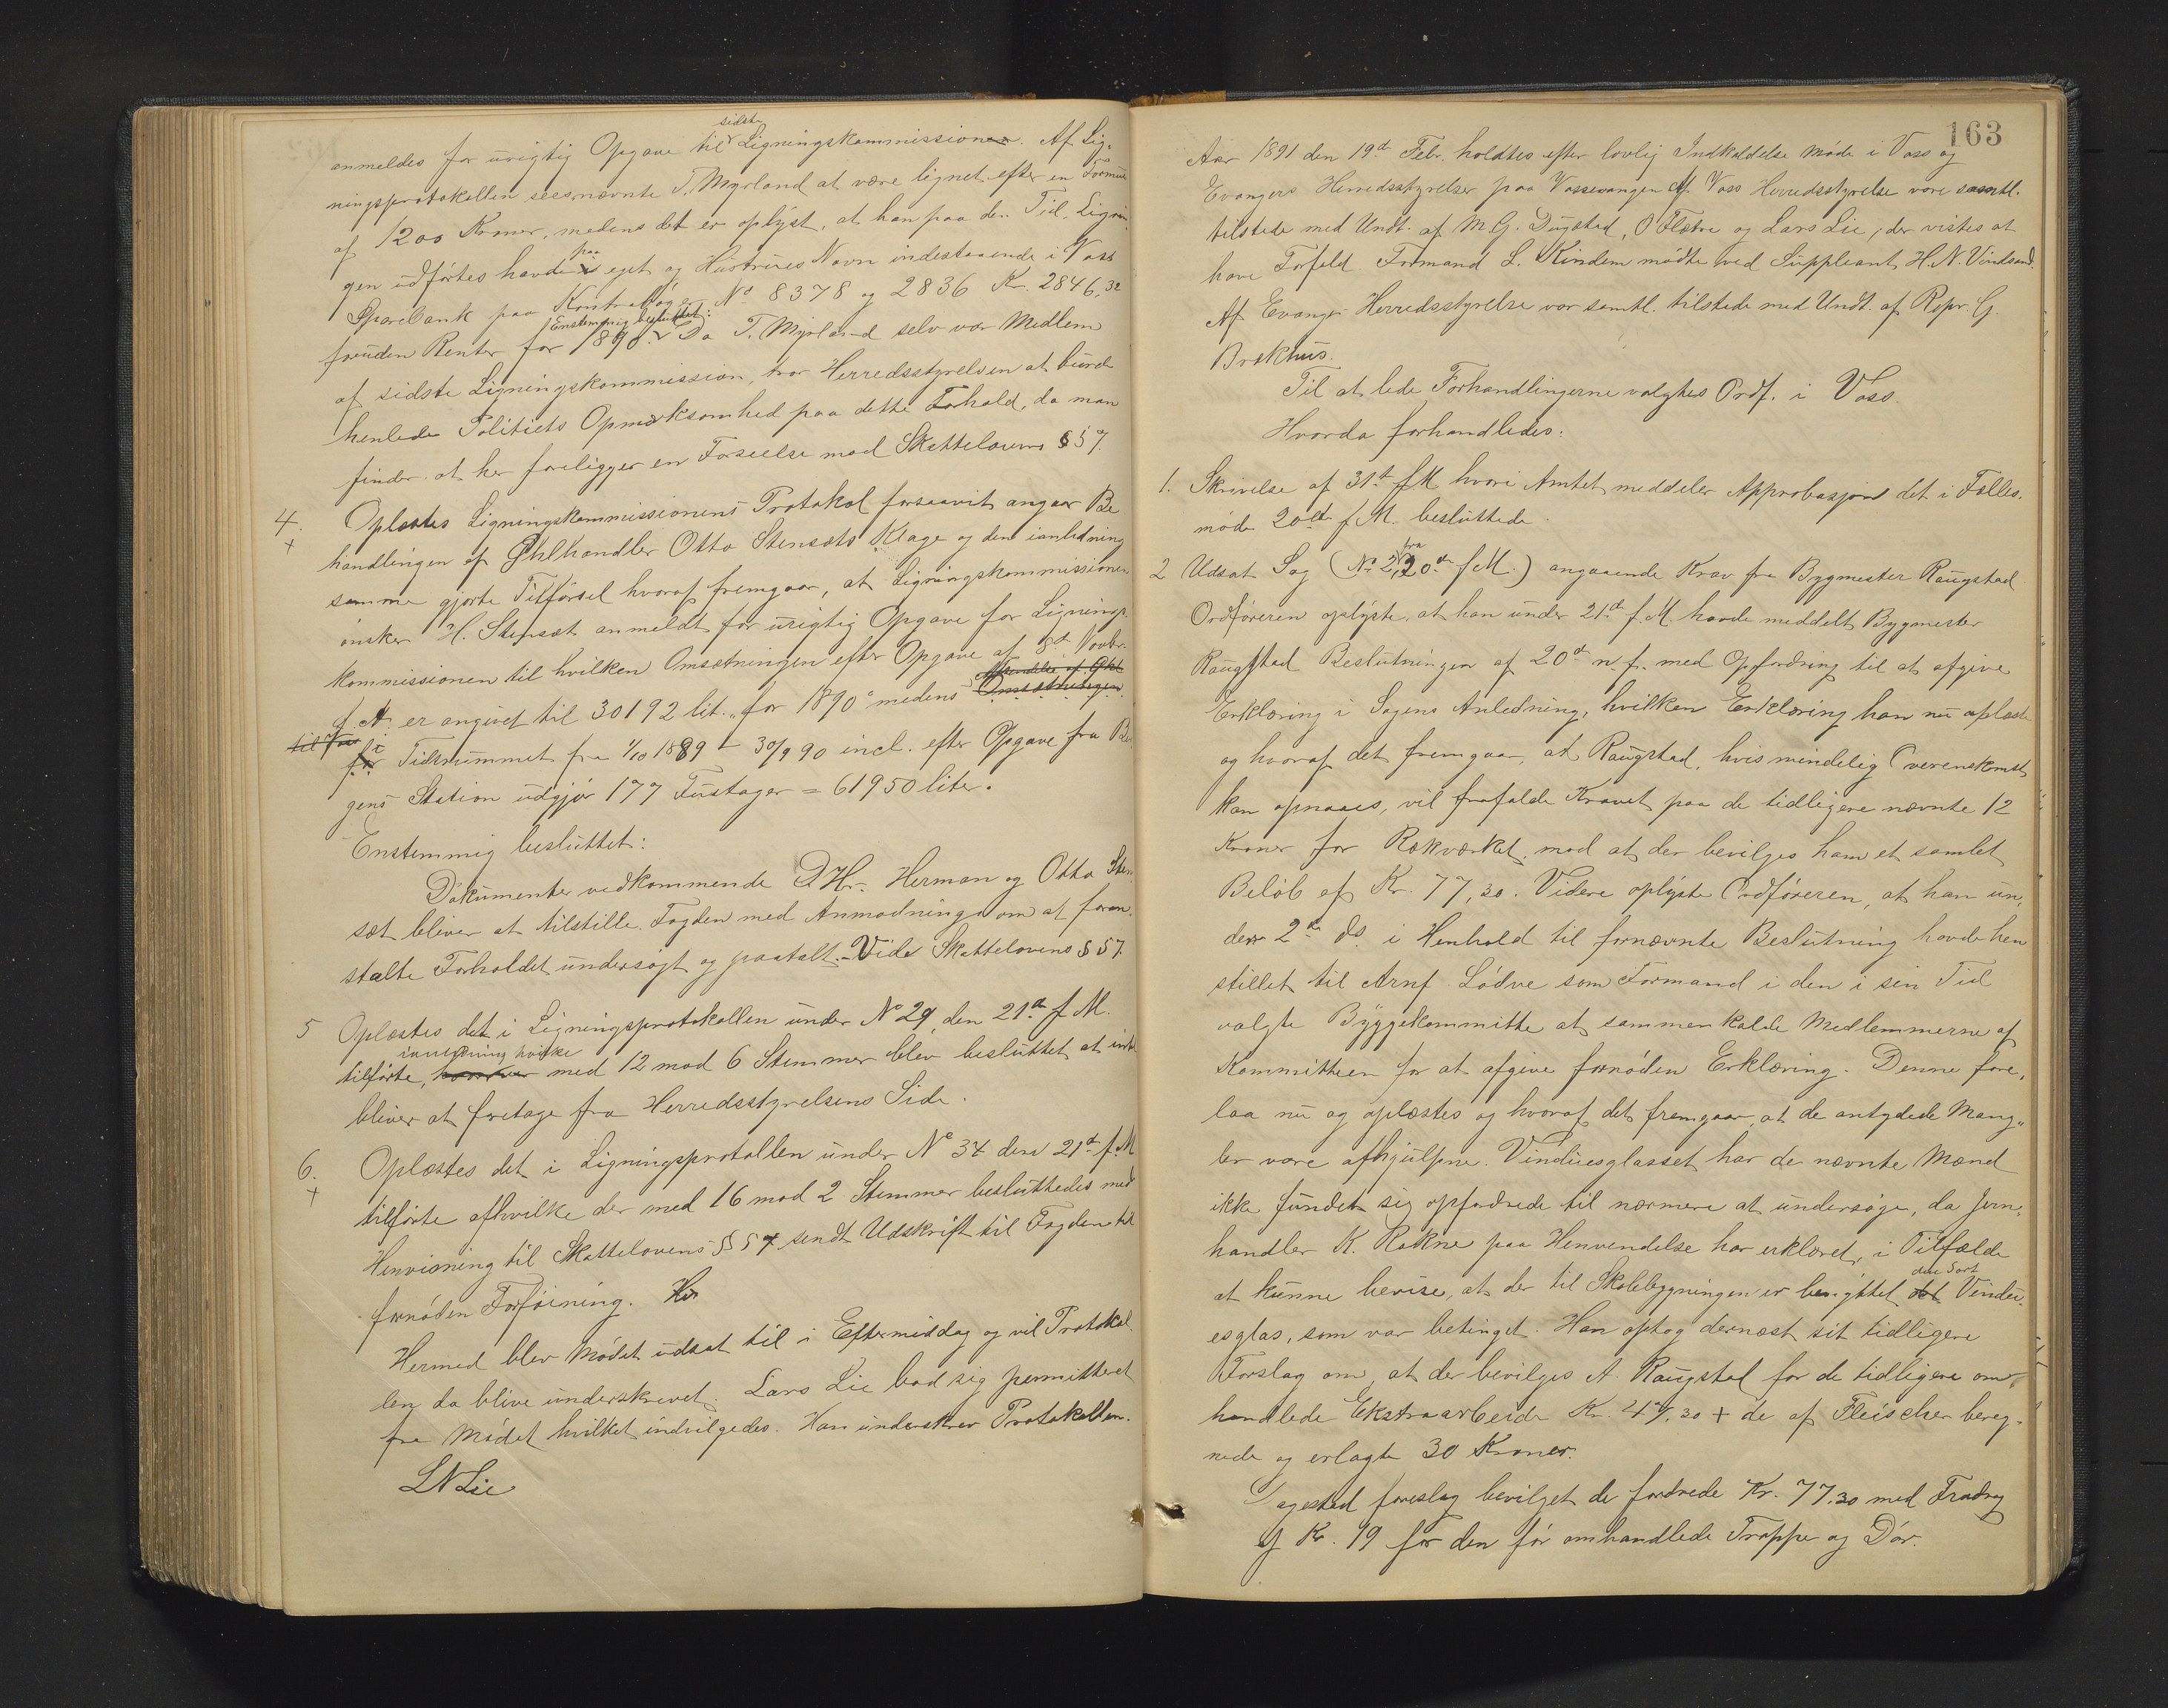 anmeldes for urigtig Opgave til sidste Ligningskommissionen. Af Lig-
ningsprotokollen sees nævnte T. Myrland at være lignet efter en Formue
af 1200 Kroner, medens det er oplyst, at han paa den Tid, Lignin-
gen udførtes havde paa eget og Hustrues Navn indestaaende i Voss
Sparebank paa Kontrabøger No 8378 og 2836 Kr. 2846,32
foruden Renter for 1890. Enstemmig besluttet: Da T. Myrland selv var Medlem
af sidste Ligningskommission, tror Herredsstyrelsen at burde
henlede Politiets Opmærksomhed paa dette Forhold, da man
finder at her foreligger en Forseelse mod Skattelovens § 57.
4. Oplæstes Ligningskommissionens Protokol forsaavit angaar Be
handlingen af Ølhandler Otto Stensæts Klage og den ianledning
samme gjorte Tilførsel hvoraf fremgaar, at Ligningskommissionen
ønsker H. Stensæt anmeldt for urigtig Opgave for Lignings-
kommissionen til hvilken Omsætningen efter Opgave af 8d Novbr.
f. A. er angivet til 30192 lit. for 1890 medens Omsætningen
for i Tidsrummet fra 1/10 1889 - 30/9 90 incl. efter Opgave fra Ber
gens Station udgjør 177 Fustager = 61950 liter.
Enstemmig besluttet:
Dokumenter vedkommende DHr. Herman og Otto Sten
sæt bliver at tilstille Fogden med Anmodning om at foran-
stalte Forholdet undersøgt og paatalt. - Vide Skattelovens § 57.
5 Oplæstes det i Ligningsprotokollen under No 29, den 21de f. M.
tilførte, ianledning hvilke med 12 mod 6 Stemmer blev besluttet at intet
bliver at foretage fra Herredsstyrelsens Side.
6. Oplæstes det i Ligningsprotollen under No 34 den 21d f. M
tilførte afhvilke der med 16 mod 2 Stemmer besluttedes med
Henvisning til Skattelovens § 57 sendt Udskrift til Fogden til
fornøden Forføining. Her
Hermed blev Mødet udsat til i Eftermiddag og vil Protokol
len da blive underskrevet. Lars Lie bad sig permitteret
fra Mødet hvilket indvilgedes. Han underskrev Protokollen.
LN Lie
163
Aar 1891 den 19d Febr. holdtes efter lovlig Indkaldelse Møde i Voss og
Evangers Herredsstyrelser paa Vossevangen. Af Voss Herredsstyrelse vare samtl.
tilstede med Undt. af M. G. Dugstad, O Flætre og Lars Lie, der vistes at
have Forfald. Formand L. Kindem mødte ved Suppleant H. N. Vindsand.
Af Evanger Herredsstyrelse var samtl. tilstede med Undt. af Repr. G.
Brækhus.
Til at lede Forhandlingerne valgtes Ordf. i Voss.
Hvorda forhandledes:
1. Skrivelse af 31te f M hvori Amtet meddeler Approbasjon det i Fælles-
møde 20de f M. besluttede.
2 Udsat Sag (No 2, fra 20de f M.) angaaende Krav fra Bygmester Raugstad
Ordføreren oplyste, at han under 21d f. M. havde meddelt Bygmester
Raugstad Beslutningen af 20d n. f. med Opfordring til at afgive
Erklæring i Sagens Anledning, hvilken Erklæring han nu oplæste
og hvoraf det fremgaar, at Raugstad, hvis mindelig Overenskomst
kan opnaaes, vil frafalde Kravet paa de tidligere nævnte 12
Kroner for Rækværket, mod at der bevilges ham et samlet
Beløb af Kr. 77,30. Videre oplyste Ordføreren, at han un-
der 2de ds. i Henhold til fornævnte Beslutning havde hen
stillet til Arnf. Lødve som Formand i den i sin Tid
valgte Byggekommitte at sammenkalde Medlemmerne af
Kommitteen for at afgive fornøden Erklæring. Denne fore-
laa nu og oplæstes og hvoraf det fremgaar, at de antydede Mang-
ler vare afhjulpne. Vinduesglasset har de nævnte Mænd
ikke fundet sig opfordrede til nærmere at undersøge, da Jern-
handler K. Rokne paa Henvendelse har erklæret, i Tilfælde
at kunne bevise, at der til Skolebygningen er benyttet den Sort Vindu-
esglas, som var betinget. Han optog dernæst sit tidligere
Forslag om, at der bevilges A. Raugstad for de tidligere om-
handlede Ekstraarbeider Kr. 47,30 + de af Fleischer bereg-
nede og erlagte 30 Kroner.
Dagestad foreslog bevilget de fordrede Kr. 77.30 med Fradrag
af Kr. 19 for den før omhandlede Trappe og Dør.